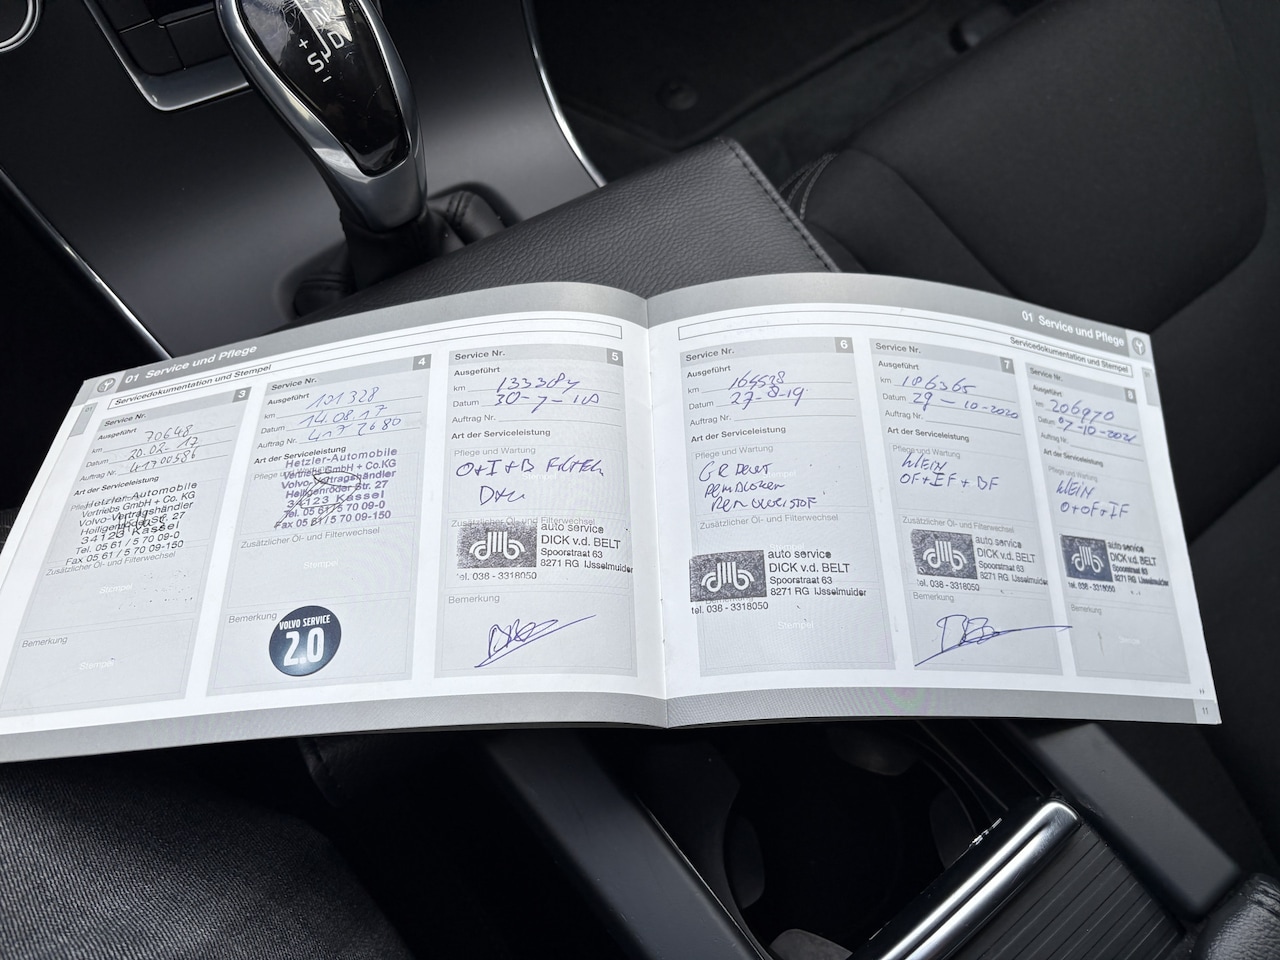 N
+ D
S
-
01 Service und Pflege
Servicedokumentation und Stempel
Service Nr. 3
Ausgeführt
km 70648
Datum 20.02.17
Auftrag Nr. 41700586
Art der Serviceleistung
Hetzler-Automobile
Vertriebs GmbH + Co. KG
Volvo-Vertragshändler
Heiligenröder Str. 27
34123 Kassel
Tel. 05 61 / 5 70 09-0
Fax 05 61 / 5 70 09-150
Zusätzlicher Öl- und Filterwechsel
Stempel
Bemerkung
Stempel
Service Nr. 4
Ausgeführt
km 101328
Datum 14.08.17
Auftrag Nr. 417 2680
Art der Serviceleistung
Hetzler-Automobile
Vertriebs GmbH + Co.KG
Volvo-Vertragshändler
Heiligenröder Str. 27
34123 Kassel
Tel. 05 61/5 70 09-0
Fax 05 61/5 70 09-150
Zusätzlicher Öl- und Filterwechsel
Stempel
Bemerkung
VOLVO SERVICE
2.0
Service Nr. 5
Ausgeführt
km 133384
Datum 30-7-18
Auftrag Nr.
Art der Serviceleistung
Pflege und Wartung
O+I+B FILTER
Zusätzlicher Öl- und Filterwechsel
auto service
DICK v.d. BELT
Spoorstraat 63
8271 RG IJsselmuiden
tel. 038 - 3318050
Bemerkung
01 Service und Pflege
Servicedokumentation und Stempel
Service Nr. 6
Ausgeführt
km 164538
Datum 27-8-19
Auftrag Nr.
Art der Serviceleistung
Pflege und Wartung
GR BEURT
REMBLOKEN
REMVLOEISTOF
auto service
DICK v.d. BELT
Spoorstraat 63
8271 RG IJsselmuiden
tel. 038 - 3318050
Stempel
Service Nr. 7
Ausgeführt
km 186365
Datum 29-10-2020
Auftrag Nr.
Art der Serviceleistung
Pflege und Wartung
KLEIN
OF+IF+BF
Zusätzlicher Öl- und Filterwechsel
auto service
DICK v.d. BELT
Spoorstraat 63
8271 RG IJsselmuiden
tel. 038 - 3318050
Bemerkung
Service Nr. 8
Ausgeführt
km 206970
Datum 07-10-2021
Auftrag Nr.
Art der Serviceleistung
Pflege und Wartung
KLEIN
O+OF+IF
Zusätzlicher Öl- und Filterwechsel
auto service
DICK v.d. BELT
Spoorstraat 63
8271 RG IJsselmuiden
tel. 038 - 3318050
Bemerkung
Stempel
11